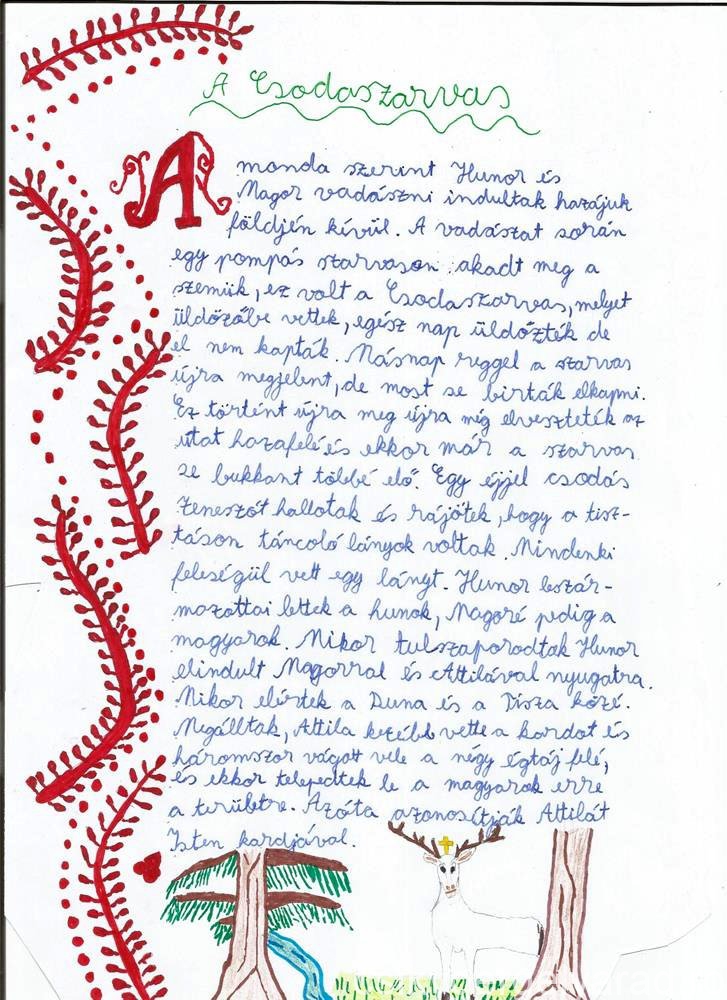 A Csodaszarvas
A monda szerint Hunor és
Magor vadászni indultak hazájuk
földjén kívül. A vadászat során
egy pompás szarvason akadt meg a
szemük, ez volt a Csodaszarvas, melyet
üldözőbe vettek, egész nap üldözték de
el nem kapták. Másnap reggel a szarvas
újra megjelent, de most se bírták elkapni.
Ez történt újra meg újra míg elvesztették az
útat hazafelé és ekkor már a szarvas
se bukkant többé elő. Egy éjjel csodás
zeneszót hallotak és rájötek, hogy a tisz-
táson táncoló lányok voltak. Mindenki
feleségül vett egy lányt. Hunor leszár-
mazottai lettek a hunok, Magoré pedig a
magyarok. Mikor tulszaporodtak Hunor
elindult Magorral és Attilával nyugatra.
Mikor elértek a Duna és a Tisza közé.
Megálltak, Attila kezébe vette a kardot és
háromszor vágott vele a négy égtáj felé,
és ekkor telepedtek le a magyarok erre
a területre. Azóta azonosítják Attilát
Isten kardjával.